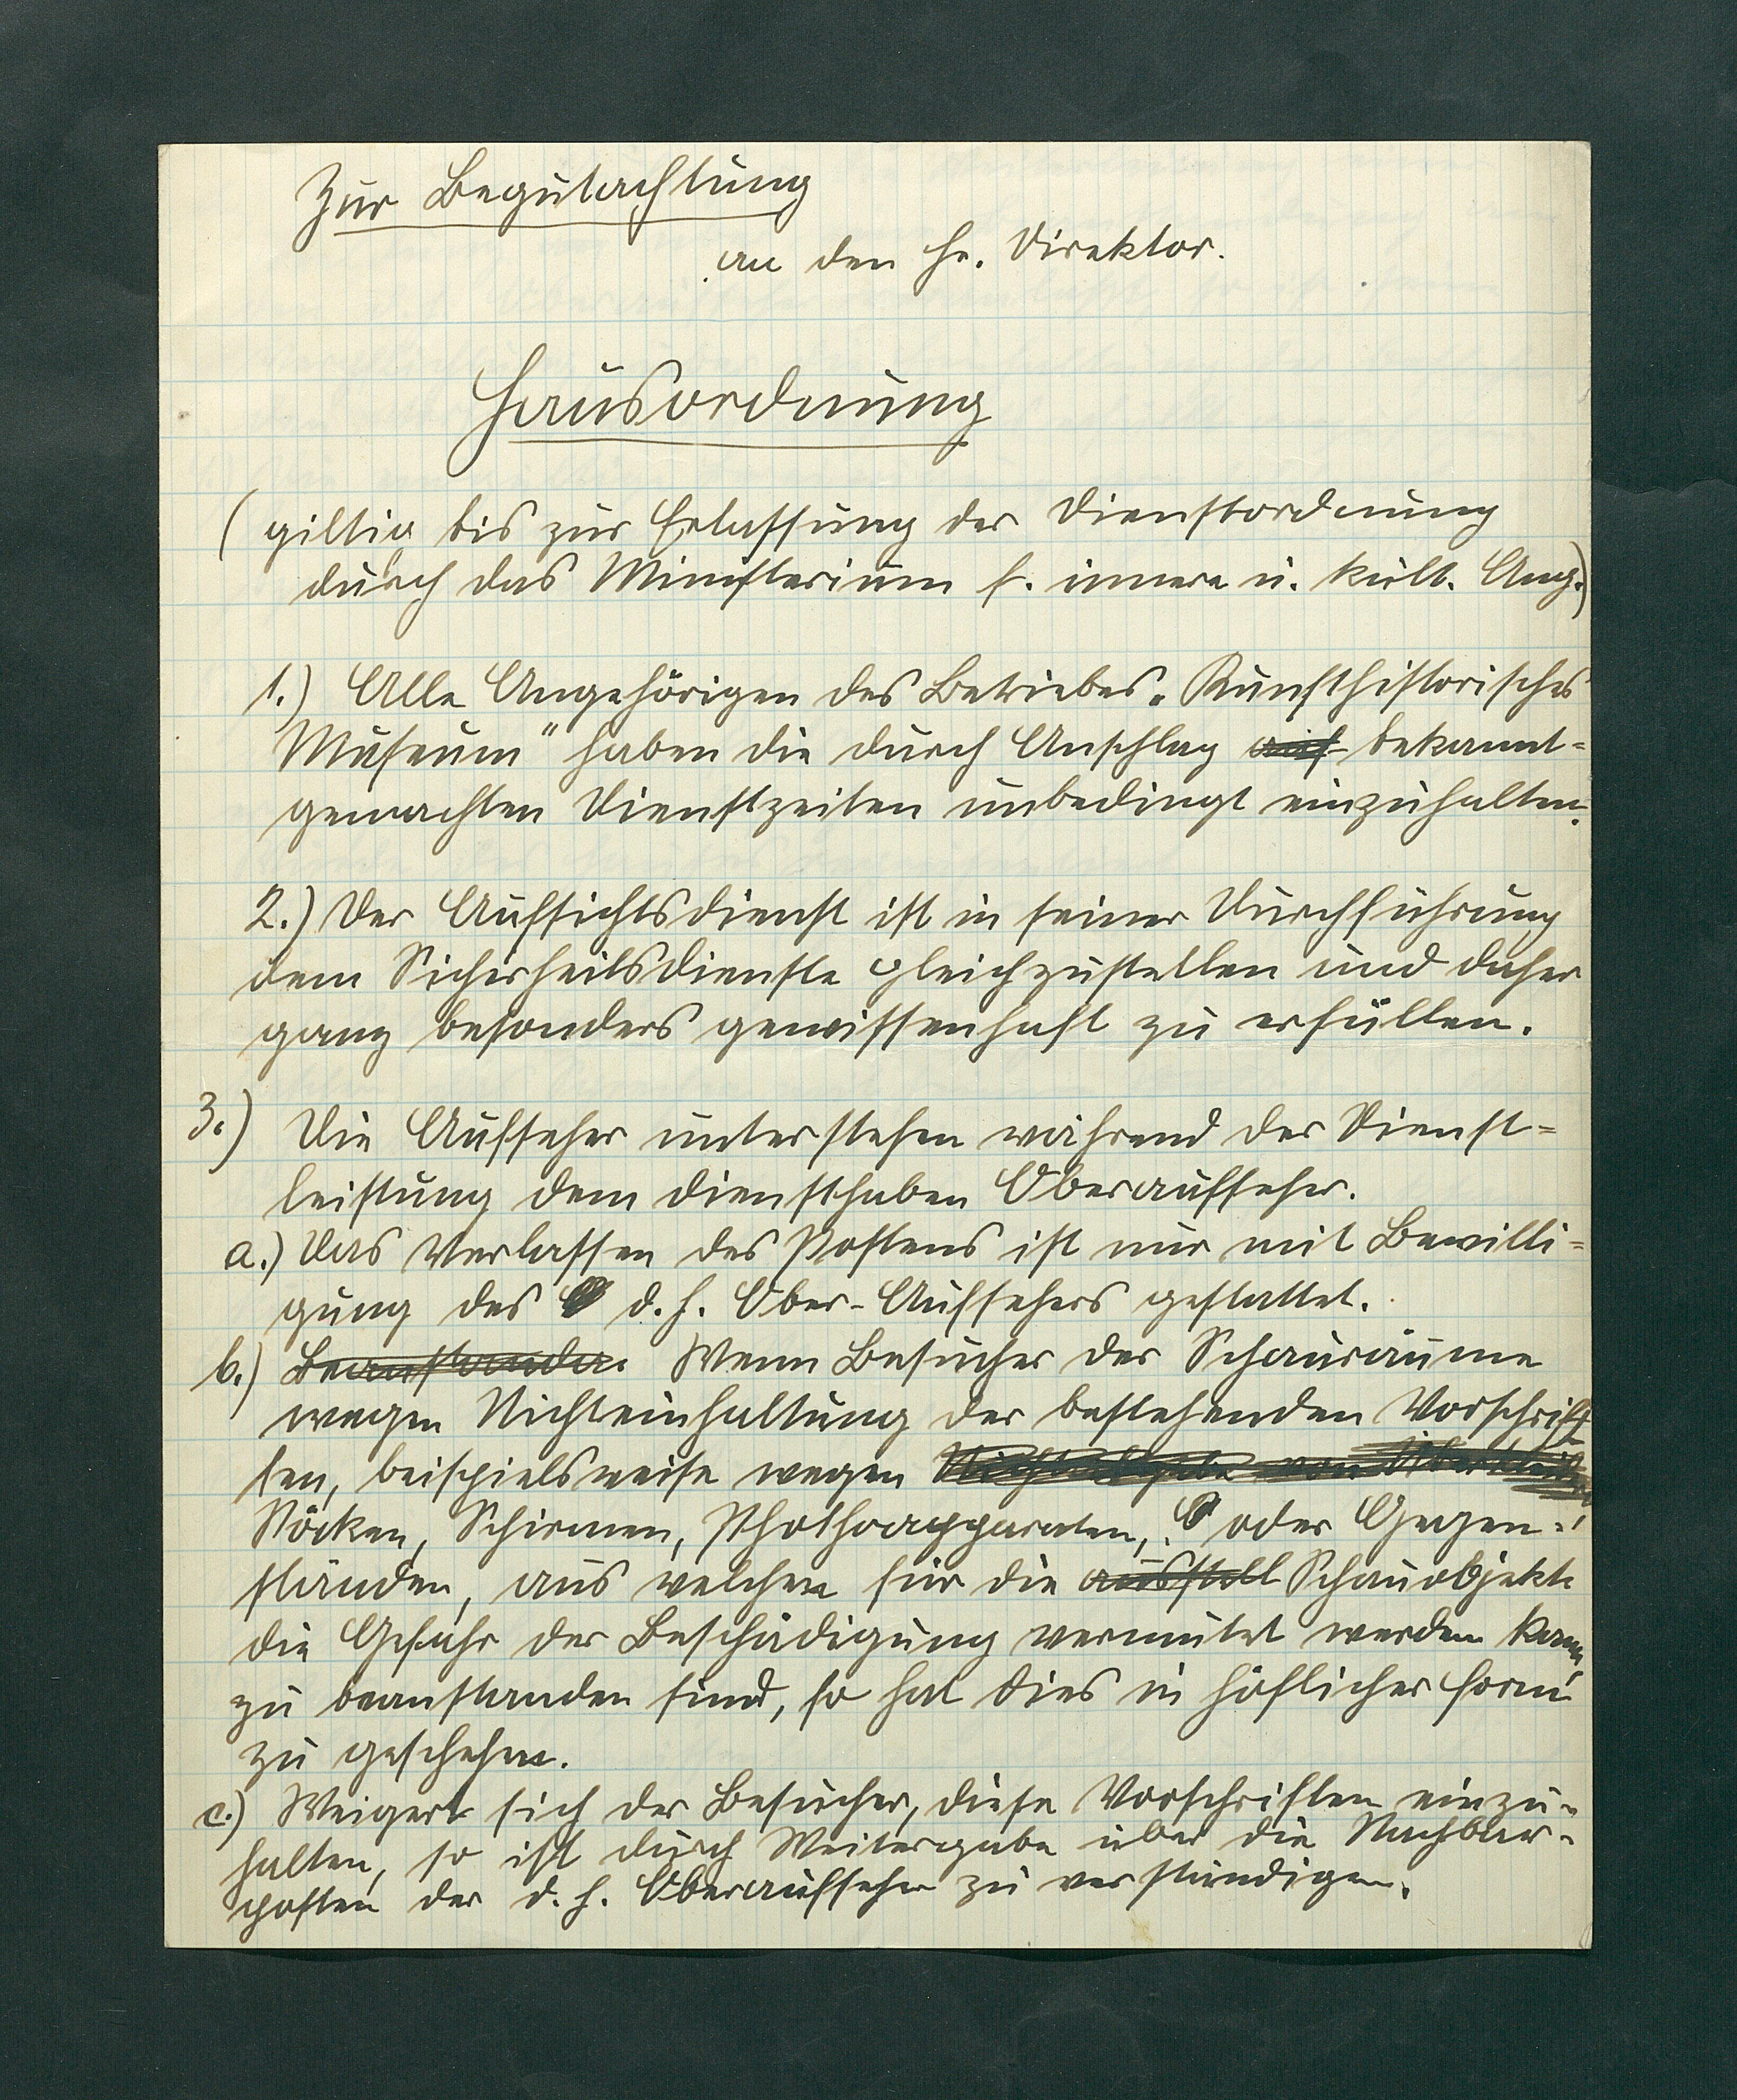 Zur Begutachtung
an den Hr. Direktor.
Hausordnung
( giltig bis zur Erlassung der Dienstordnung
durch das Ministerium f. innere u. kult. Ang.)
1.) Alle Angehörigen des Betriebes „Kunsthistorisches
Museum" haben die durch Anschlag auf bekannt=
gemachten Dienstzeiten unbedingt einzuhalten.
2.) Der Aufsichtsdienst ist in seiner Durchführung
dem Sicherheitsdienste gleichzustellen und daher
ganz besonders gewissenhaft zu erfüllen.
3.) Die Aufseher unterstehen während der Dienst=
leistung dem diensthaben Oberaufseher.
a.) Das Verlassen des Postens ist nur mit Bewilli=
gung des O d. h. Ober-Aufsehers gestattet.
b.) Beanstanden Wenn Besucher der Schauräume
wegen Nichteinhaltung der bestehenden Vorschrif=
ten, beispielsweise wegen Nichtabgabe von Überkleidern
Stöcken, Schirmen, Photoapparaten, oder Gegen=
ständen, aus welchen für die ausstell Schauobjekte
die Gefahr der Beschädigung vermutet werden kann,
zu beanstanden sind, so hat dies in höflicher Form
zu geschehen.
c.) Weigert sich der Besucher, diese Vorschriften einzu=
halten, so ist durch Weitergabe über die Nachbar=
posten der d. h. Oberaufseher zu verständigen.